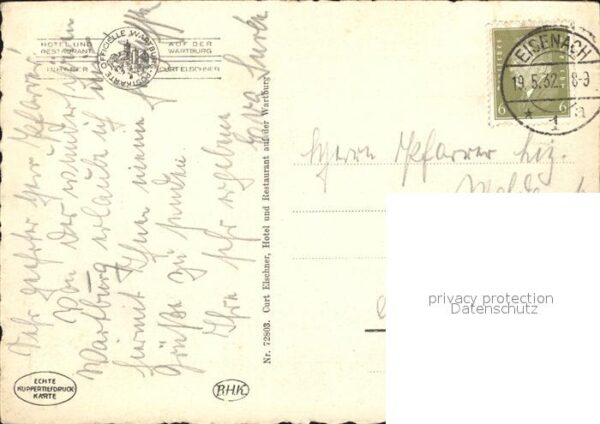 HOTEL UND
RESTAURANT
AUF DER
WARTBURG
INHABER
CURT ELSCHNER
OFFICIELLE WARTBURG-POSTKARTE
Sehr geehrter Herr Pfarrer!
Von der wunderschönen
Wartburg erlaube ich mir
hiermit Ihnen meine
Grüße zu senden.
Ihre sehr ergebene
Eva
Nr. 72803. Curt Elschner, Hotel und Restaurant auf der Wartburg
EISENACH
19.5.32. 8-9
* 1 a
6 6
Herrn Pfarrer Liz.
privacy protection
Datenschutz
ECHTE
KUPFERTIEFDRUCK
KARTE
R.H.K.